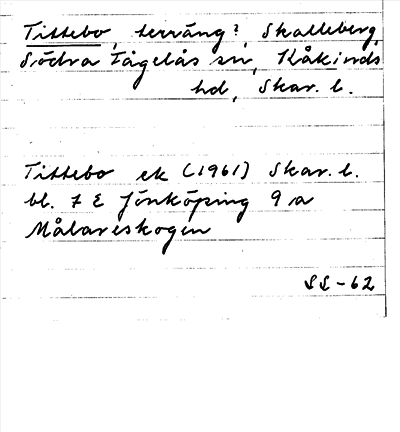 Tittebo, terräng?, Skalleberg,
Södra Fågelås sn, Kåkinds
hd, Skar. l.
Tittebo ek (1961) Skar. l.
bl. 7 E Jönköping 9 a
Målareskogen
SL-62